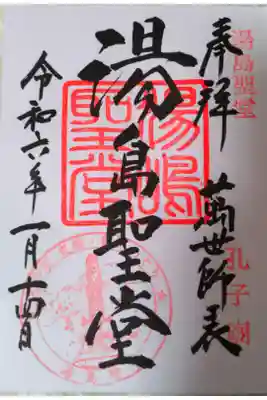 湯島聖堂 孔子廟
奉拝 萬世師表
湯島聖堂
湯嶋
聖堂
令和六年一月十四日